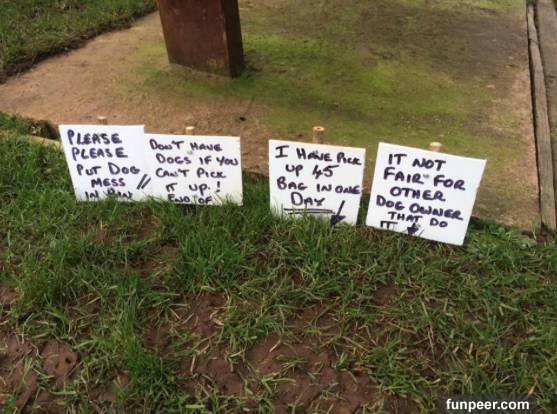 PLEASE
PLEASE
PUT DOG
MESS
IN BIN
DON'T HAVE
DOGS IF YOU
CAN'T PICK
IT UP.!
END OF
I HAVE PICK
UP 45
BAG IN ONE
DAY
IT NOT
FAIR FOR
OTHER
DOG OWNER
THAT DO
IT
funpeer.com